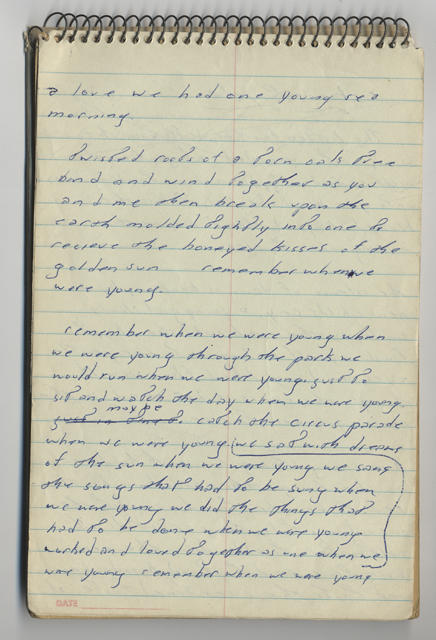 a love we had one young sea
morning.
twisted roots of a torn oak tree
bind and wind together as you
and me then break upon the
earth molded tightly into one to
recieve the honeyed kisses of the
golden sun remember when we
were young.
remember when we were young when
we were young through the park we
would run when we were young just to
sit and watch the day when we were young
maybe
just in time to catch the circus parade
when we were young we sat with dreams
of the sun when we were young we sang
the songs that had to be sung when
we were young we did the things that
had to be done when we were young
worked and loved together as one when we
were young remember when we were young
DATE